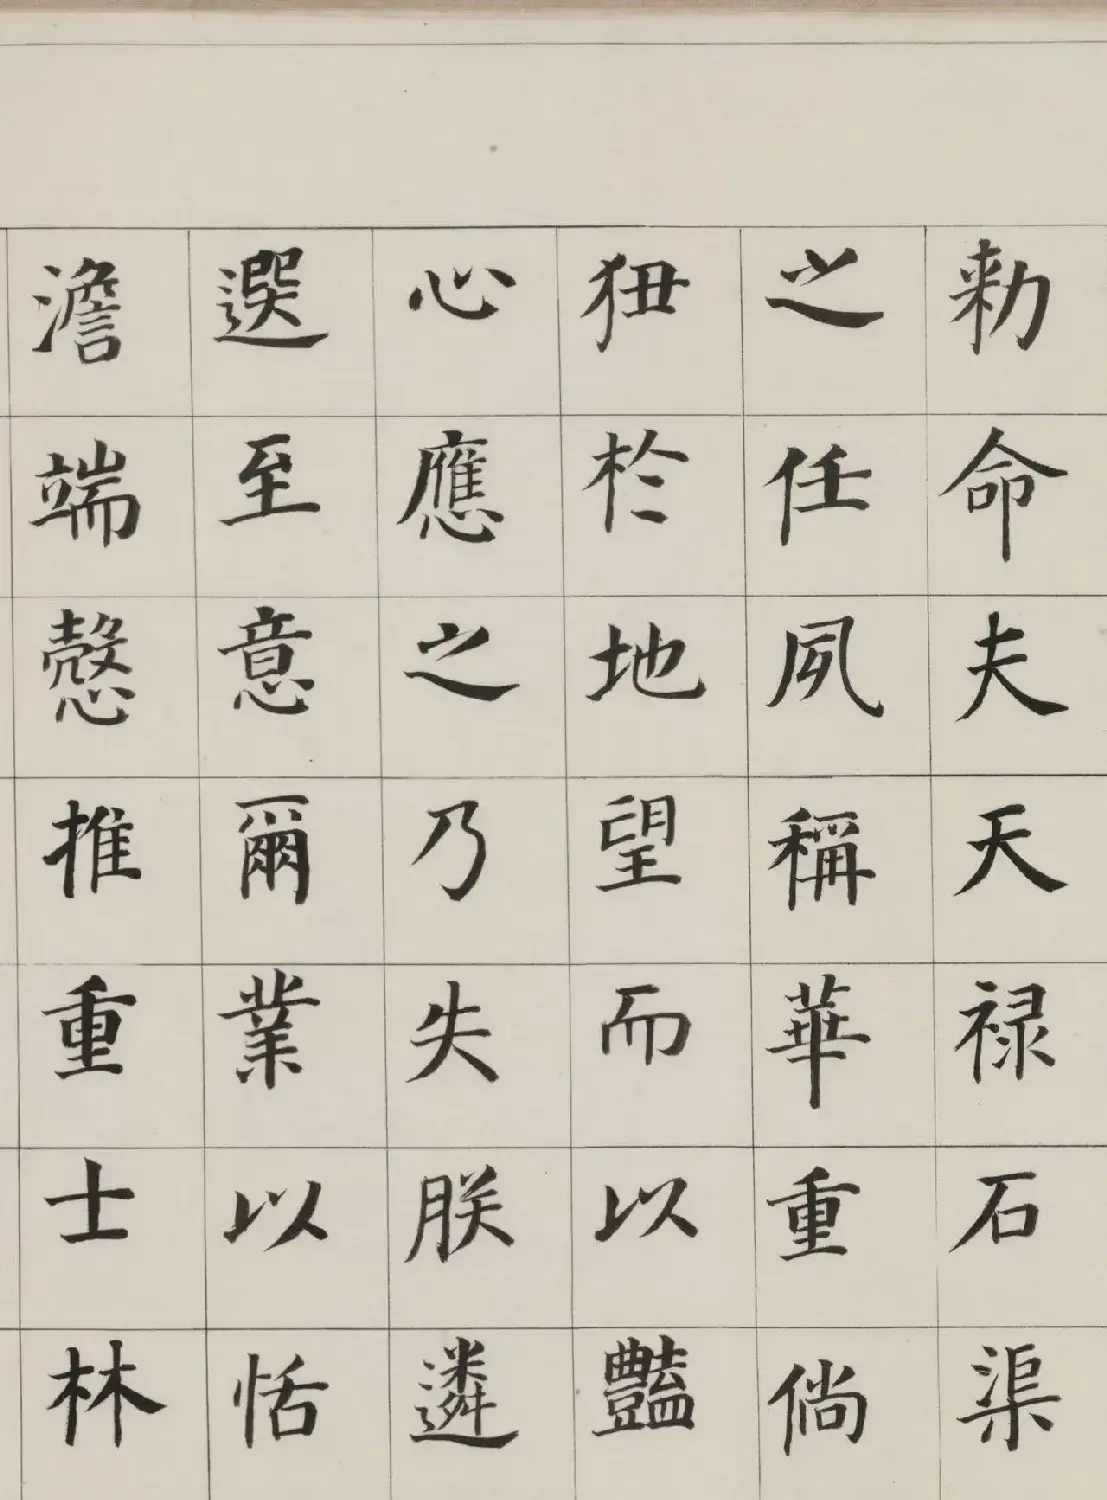 勑命夫天禄石渠
之任夙稱華重倘
狃扵地望而以豔
心應之乃失朕遴
選至意爾業以恬
澹端慤推重士林